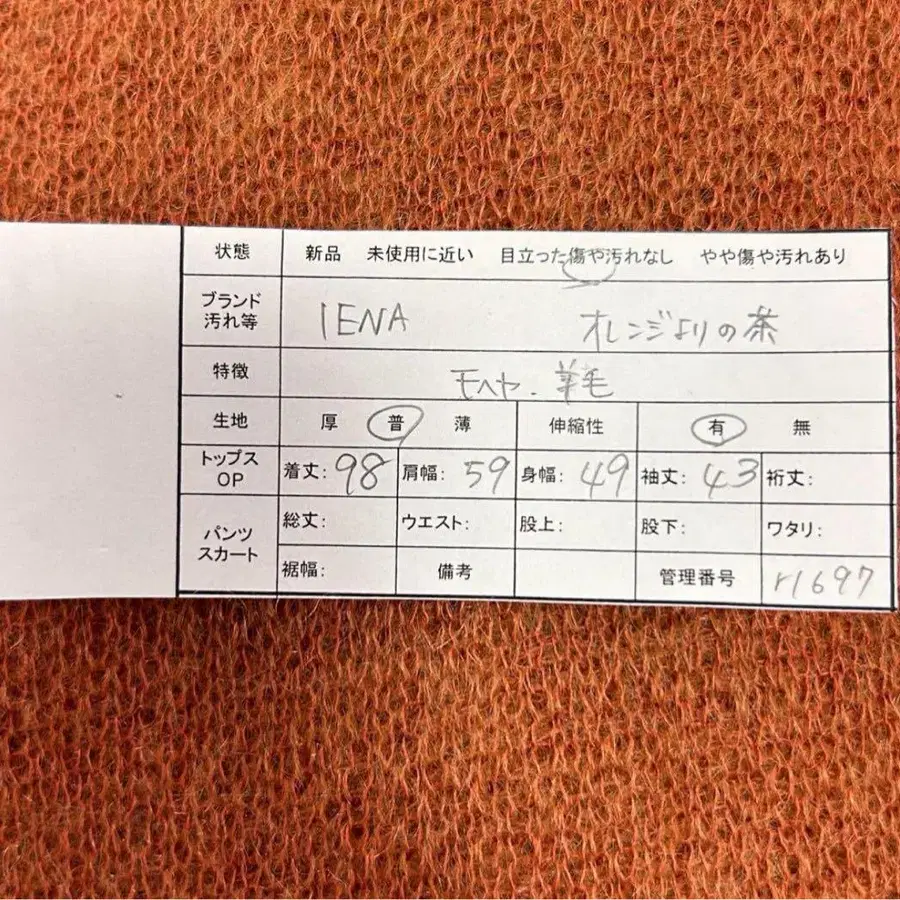 状態 新品 未使用に近い 目立った傷や汚れなし やや傷や汚れあり
ブランド
汚れ等 IENA オレンジよりの茶
特徴 モヘヤ. 羊毛
生地 厚 普 薄 伸縮性 有 無
トップス
OP 着丈: 98 肩幅: 59 身幅: 49 袖丈: 43 裄丈:
パンツ
スカート 総丈: ウエスト: 股上: 股下: ワタリ:
裾幅: 備考 管理番号 r1697